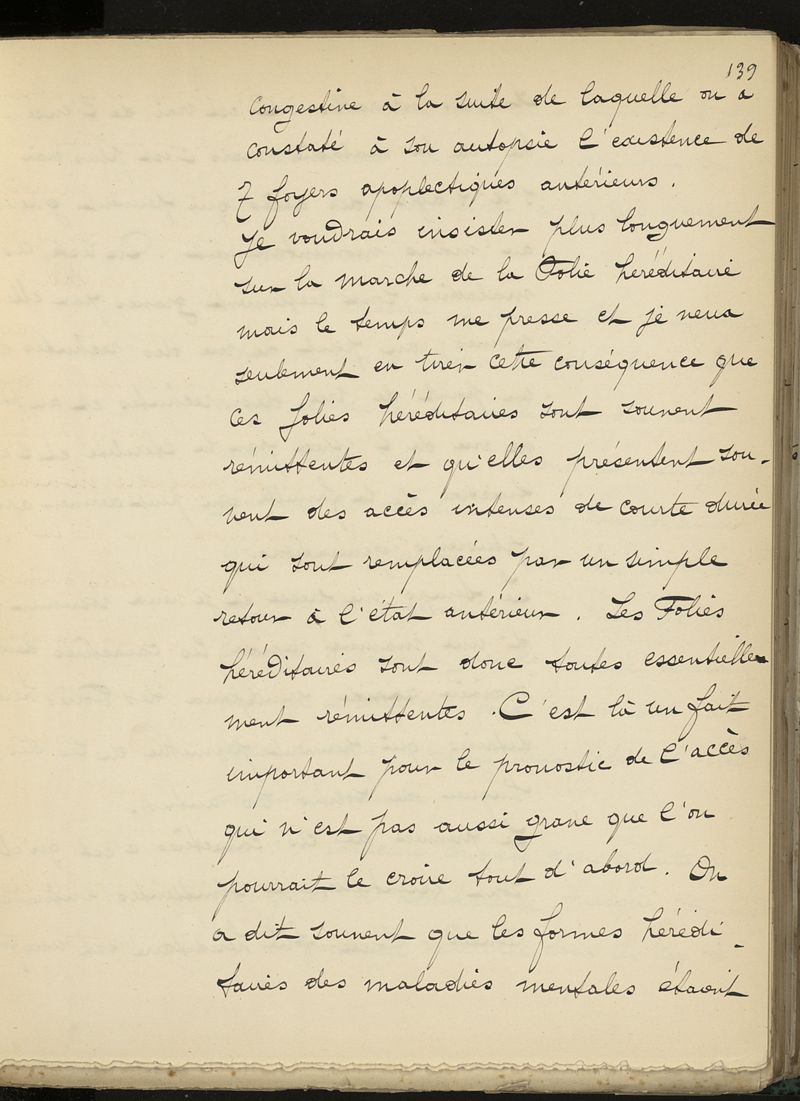 139
Congestive à la suite de laquelle on a
constaté à son autopsie l'existence de
7 foyers apoplectiques antérieurs.
Je voudrais insister plus longuement
sur la marche de la Folie héréditaire
mais le temps me presse et je veux
seulement en tirer cette conséquence que
ces folies héréditaires sont souvent
rémittentes et qu'elles présentent sou-
vent des accès intenses de courte durée
qui sont remplacées par un simple
retour à l'état antérieur. Les Folies
héréditaires sont donc toutes essentielle-
ment rémittentes. C'est là un fait
important pour le pronostic de l'accès
qui n'est pas aussi grave que l'on
pourrait le croire tout d'abord. On
a dit souvent que les formes hérédi-
taires des maladies mentales étaient